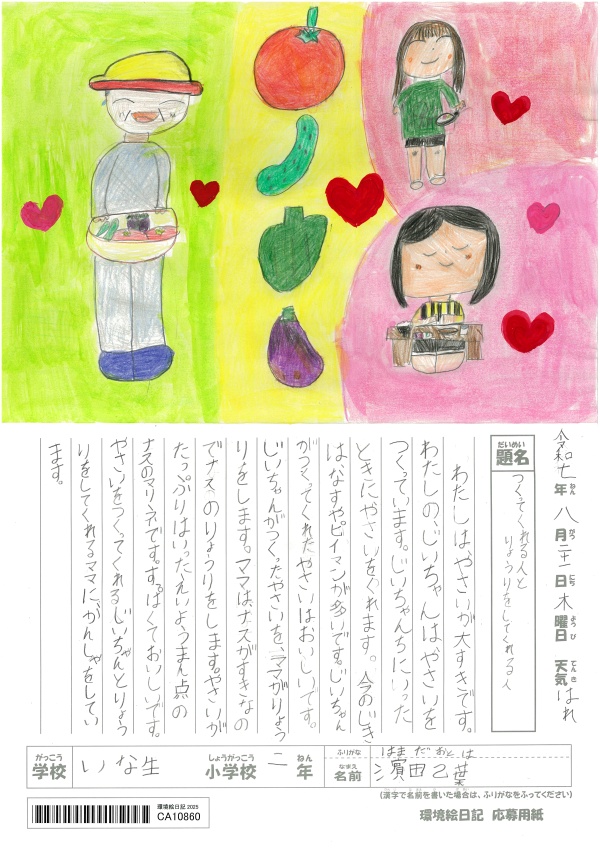 令和七年八月二十一日木曜日 天気はれ
ねん がつ にち ようび てんき
だいめい
題名
つくってくれる人と
りょうりをしてくれる人
わたしは、やさいが大すきです。
わたしの、じいちゃんは、やさいを
つくっています。じいちゃんちにいった
ときにやさいをくれます。今のじき
はなすやピイマンが多いです。じいちゃん
がつくってくれたやさいはおいしいです。
じいちゃんがつくったやさいを、ママがりょう
りをします。ママは、ナスがすきなの
でナスのりょうりをします。やさいが
たっぷりはいったえいようまん点の
ナスのマリネです。すっぱくておいしいです。
やさいをつくってくれるじいちゃんとりょう
りをしてくれるママに、かんしゃをしてい
ます。
がっこう しょうがっこう ねん
学校 いな生 小学校 二 年
ふりがな はまだ おとは
なまえ
名前 濱田乙葉
(漢字で名前を書いた場合は、ふりがなをふってください)
環境絵日記 2025
CA10860
環境絵日記 応募用紙